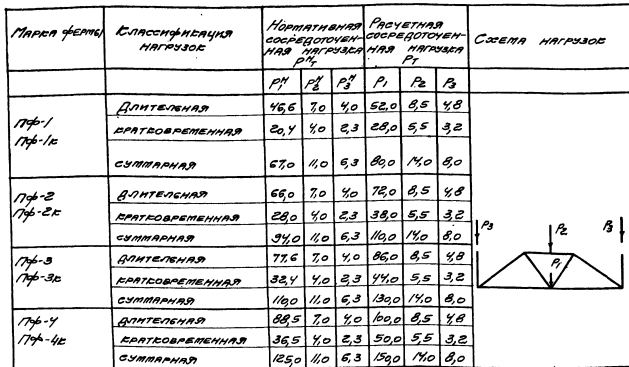 МАРКА ФЕРМЫ КЛАССИФИКАЦИЯ НАГРУЗОК НОРМАТИВНАЯ СОСРЕДОТОЧЕННАЯ НАГРУЗКА PᴴТ РАСЧЕТНАЯ СОСРЕДОТОЧЕННАЯ НАГРУЗКА PТ СХЕМА НАГРУЗОК
P₁ᴴ P₂ᴴ P₃ᴴ P₁ P₂ P₃
ПФ-1
ПФ-1к
ДЛИТЕЛЬНАЯ 46,6 7,0 4,0 52,0 8,5 4,8
КРАТКОВРЕМЕННАЯ 20,4 4,0 2,3 28,0 5,5 3,2
СУММАРНАЯ 67,0 11,0 6,3 80,0 14,0 8,0
ПФ-2
ПФ-2к
ДЛИТЕЛЬНАЯ 66,0 7,0 4,0 72,0 8,5 4,8
КРАТКОВРЕМЕННАЯ 28,0 4,0 2,3 38,0 5,5 3,2
СУММАРНАЯ 94,0 11,0 6,3 110,0 14,0 8,0
ПФ-3
ПФ-3к
ДЛИТЕЛЬНАЯ 77,6 7,0 4,0 86,0 8,5 4,8
КРАТКОВРЕМЕННАЯ 32,4 4,0 2,3 44,0 5,5 3,2
СУММАРНАЯ 110,0 11,0 6,3 130,0 14,0 8,0
ПФ-4
ПФ-4к
ДЛИТЕЛЬНАЯ 88,5 7,0 4,0 100,0 8,5 4,8
КРАТКОВРЕМЕННАЯ 36,5 4,0 2,3 50,0 5,5 3,2
СУММАРНАЯ 125,0 11,0 6,3 150,0 14,0 8,0
P₃ P₂ P₃
P₁